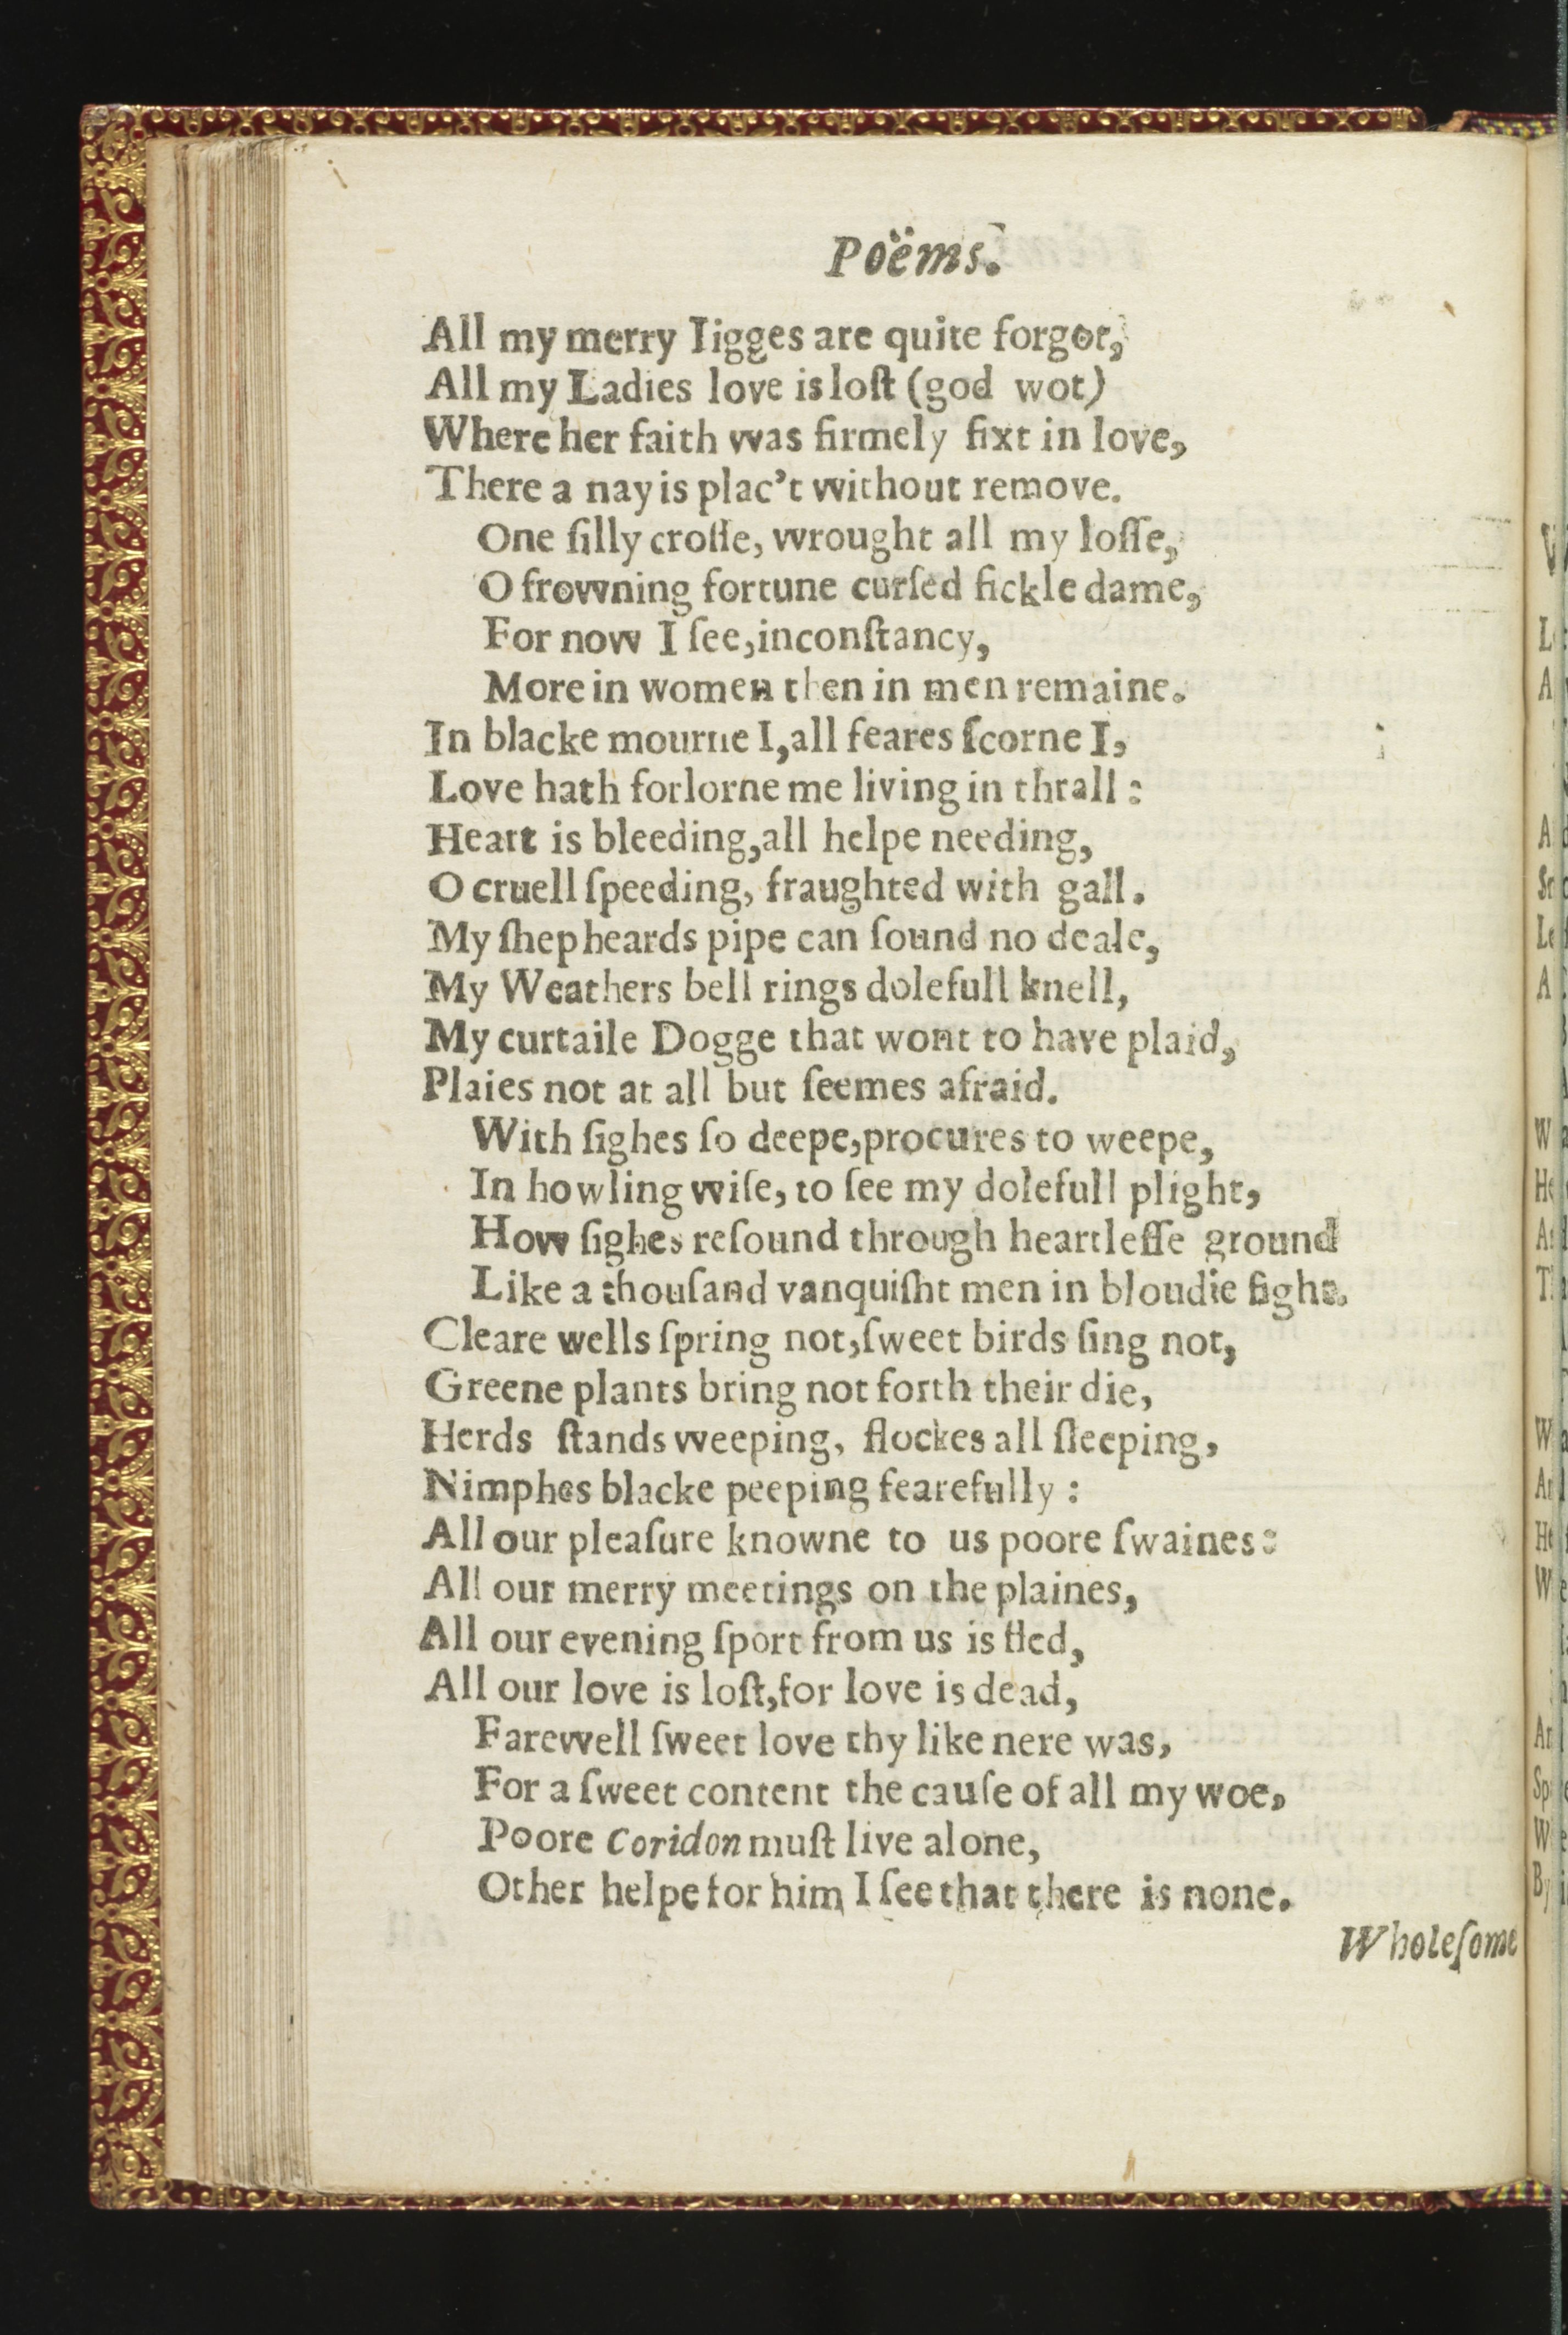 Poëms.
All my merry Iigges are quite forgot,
All my Ladies love is loſt (god wot)
Where her faith was firmely fixt in love,
There a nay is plac't without remove.
One ſilly croſſe, wrought all my loſſe,
O frowning fortune curſed fickle dame,
For now I ſee,inconſtancy,
More in women then in men remaine.
In blacke mourne I,all feares ſcorne I,
Love hath forlorne me living in thrall:
Heart is bleeding,all helpe needing,
O cruell ſpeeding, fraughted with gall.
My ſhepheards pipe can ſound no deale,
My Weathers bell rings dolefull knell,
My curtaile Dogge that wont to have plaid,
Plaies not at all but ſeemes afraid.
With ſighes ſo deepe,procures to weepe,
In howling wiſe, to ſee my dolefull plight,
How ſighes reſound through heartleſſe ground
Like a thouſand vanquiſht men in bloudie fight.
Cleare wells ſpring not,ſweet birds ſing not,
Greene plants bring not forth their die,
Herds ſtands weeping, flockes all ſleeping,
Nimphes blacke peeping fearefully:
All our pleaſure knowne to us poore ſwaines:
All our merry meetings on the plaines,
All our evening ſport from us is fled,
All our love is loſt,for love is dead,
Farewell ſweet love thy like nere was,
For a ſweet content the cauſe of all my woe,
Poore Coridon muſt live alone,
Other helpe for him I ſee that there is none.
Wholeſome